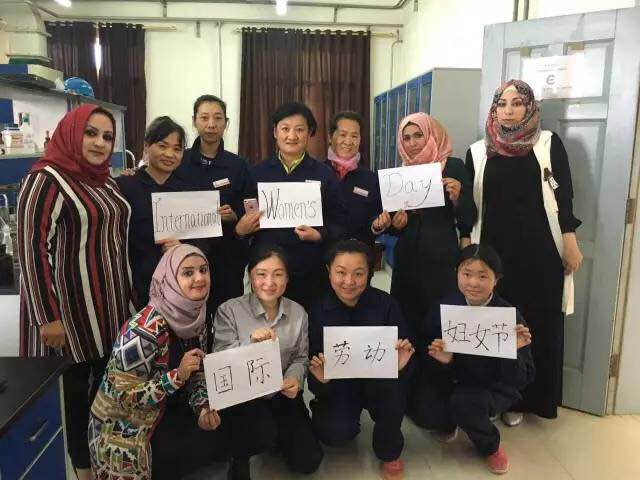 International Women's Day
国际 劳动 妇女节